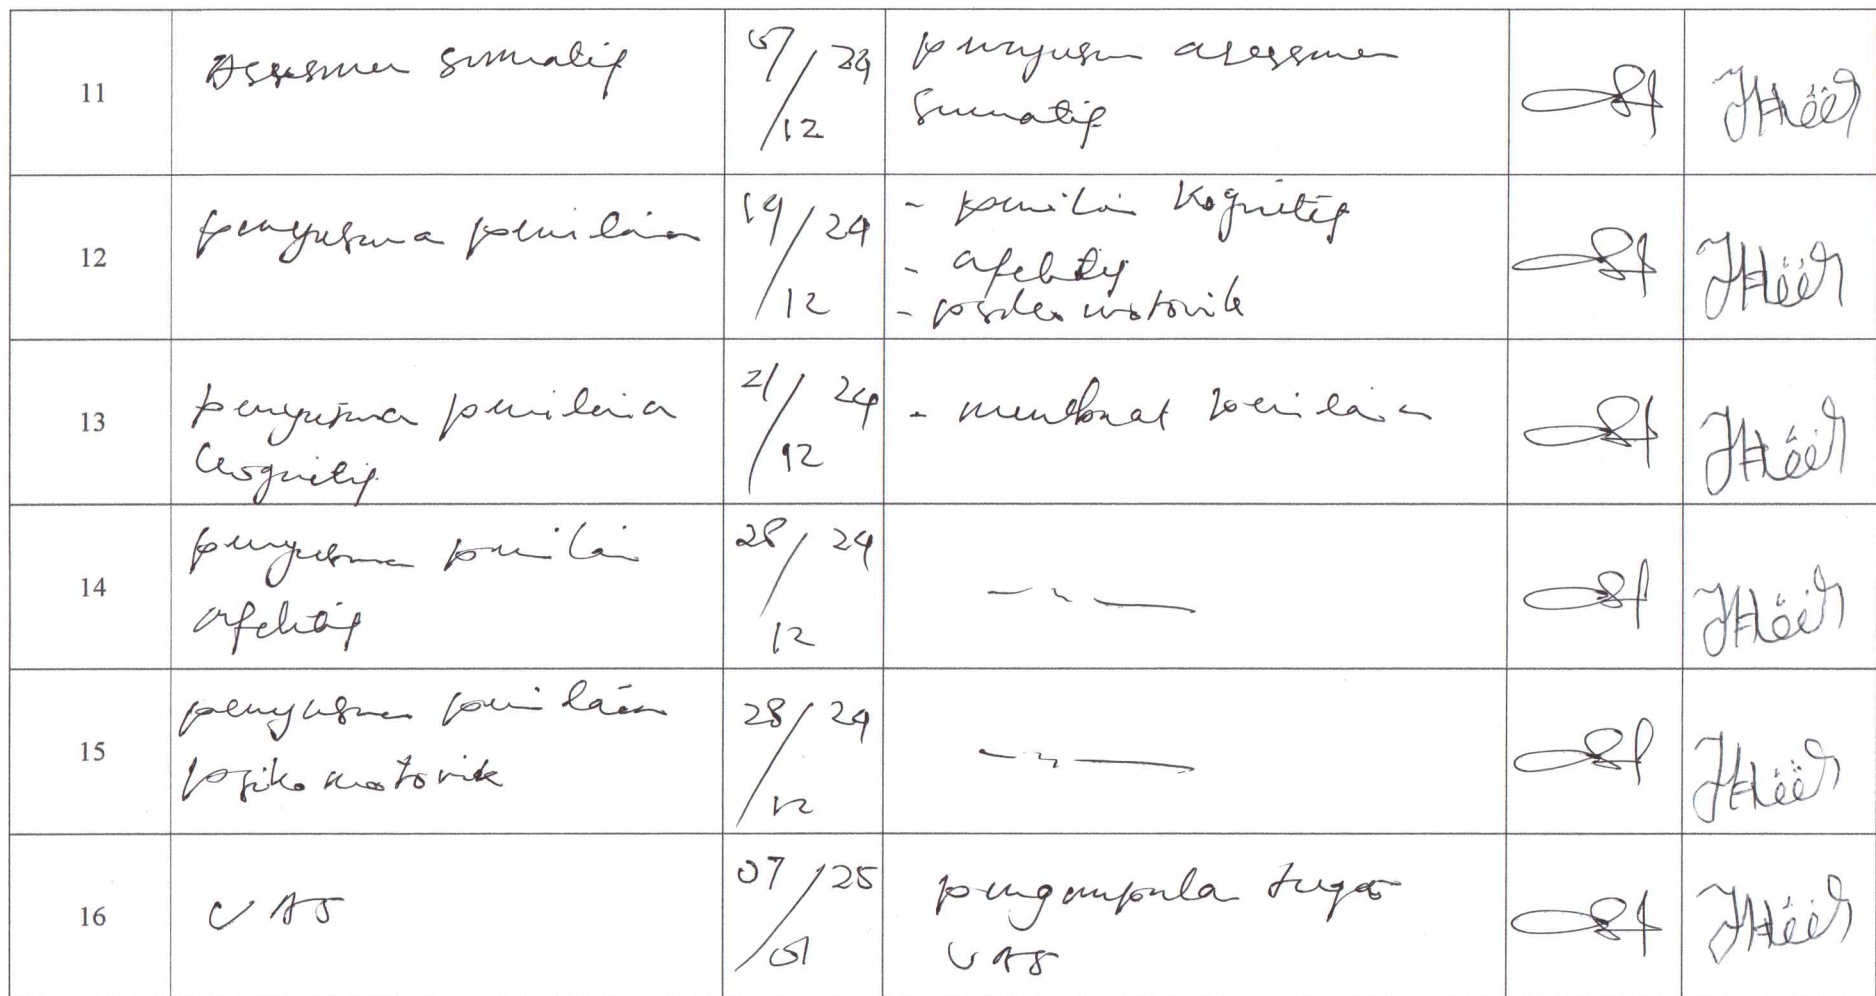 11 Assesmen sumatif 07/12 24 penyusun asessmen
sumatif
12 penyusunan penilaian 19/12 24 - penilain Kognitif
- afektif
- psikomotorik
13 penyusunan penilaian 21/12 24 - membuat penilaian
kognitif
14 penyusunan penilain 28/12 24 — 〃 —
afektif
15 penyusunan penilaian 28/12 24 — 〃 —
psikomotorik
16 UAS 07/01 25 pengumpulan tugas
UAS